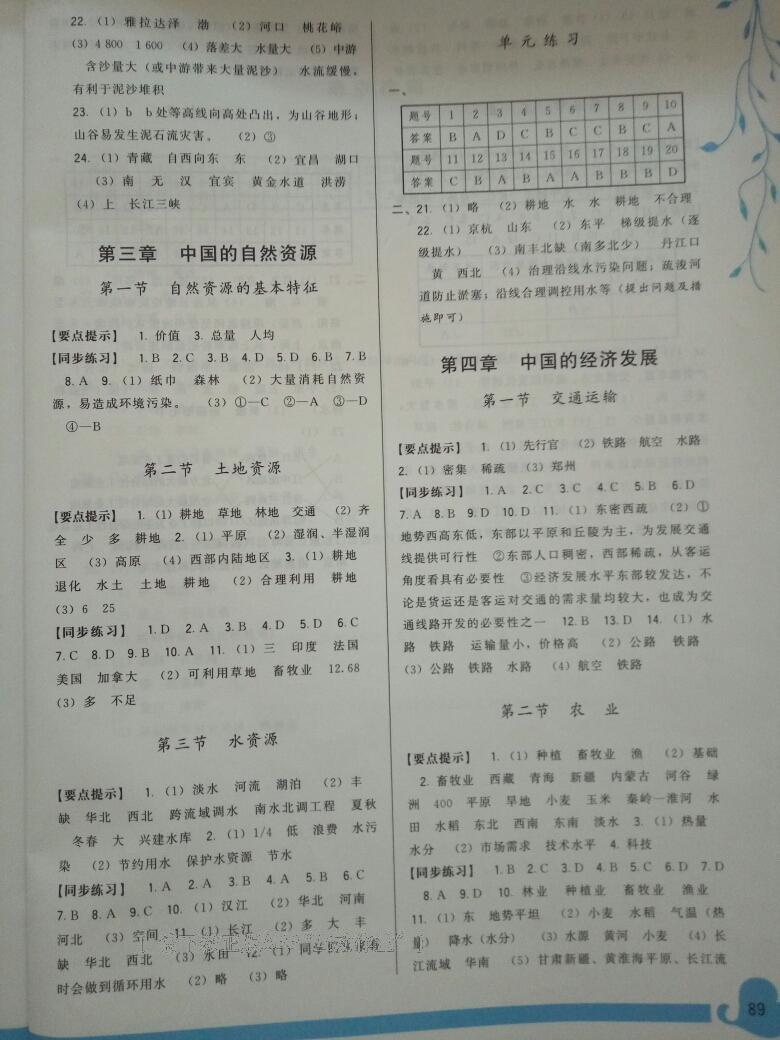 22. (1) 雅拉达泽 渤 (2) 河口 桃花峪
(3) 4 800 1 600 (4) 落差大 水量大 (5) 中游
含沙量大（或中游带来大量泥沙） 水流缓慢，
有利于泥沙堆积
23. (1) b b处等高线向高处凸出，为山谷地形；
山谷易发生泥石流灾害。 (2) ③
24. (1) 青藏 自西向东 东 (2) 宜昌 湖口
(3) 南 无 汉 宜宾 黄金水道 洪涝
(4) 上 长江三峡
第三章 中国的自然资源
第一节 自然资源的基本特征
【要点提示】 1. 价值 3. 总量 人均
【同步练习】 1. B 2. C 3. B 4. D 5. D 6. B 7. B
8. A 9. (1) 纸巾 森林 (2) 大量消耗自然资
源，易造成环境污染。 (3) ①—C ②—A ③—D
④—B
第二节 土地资源
【要点提示】 1. (1) 耕地 草地 林地 交通 (2) 齐
全 少 多 耕地 2. (1) 平原 (2) 湿润、半湿润
区 (3) 高原 (4) 西部内陆地区 3. (1) 耕地
退化 水土 土地 耕地 (2) 合理利用 耕地
(3) 6 25
【同步练习】 1. D 2. A 3. B 4. D 5. D 6. C
7. C 8. D 9. B 10. A 11. (1) 三 印度 法国
美国 加拿大 (2) 可利用草地 畜牧业 12.68
(3) 多 不足
第三节 水资源
【要点提示】 1. (1) 淡水 河流 湖泊 (2) 丰
缺 华北 西北 跨流域调水 南水北调工程 夏秋
冬春 大 兴建水库 2. (1) 1/4 低 浪费 水污
染 (2) 节约用水 保护水资源 节水
【同步练习】 1. A 2. A 3. B 4. A 5. B 6. C
7. B 8. A 9. C 10. (1) 汉江 (2) 华北 河南
河北 (3) 空间 11. (1) 长江 (2) 多 大 丰
缺 华北 西北 (3) 水田 12. (1) 同学
时会做到循环用水 (2) 略 (3) 略
单元练习
一、
题号 1 2 3 4 5 6 7 8 9 10
答案 B A D C B C C B C A
题号 11 12 13 14 15 16 17 18 19 20
答案 C B A B A A B B B D
二、21. (1) 略 (2) 耕地 水 水 耕地 不合理
22. (1) 京杭 山东 (2) 东平 梯级提水（逐
级提水） (3) 南丰北缺（南多北少） 丹江口
黄 西北 (4) 治理沿线水污染问题；疏浚河
道防止淤塞；沿线合理调控用水等（提出问题及措
施即可）
第四章 中国的经济发展
第一节 交通运输
【要点提示】 1. (1) 先行官 (2) 铁路 航空 水路
2. (1) 密集 稀疏 (3) 郑州
【同步练习】 1. A 2. C 3. C 4. C 5. B 6. D
7. A 8. B 9. D 10. D 11. (1) 东密西疏 (2) ①
地势西高东低，东部以平原和丘陵为主，为发展交通
线提供可行性 ②东部人口稠密，西部稀疏，从客运
角度看具有必要性 ③经济发展水平东部较发达，不
论是货运还是客运对交通的需求量均较大，也成为交
通线路开发的必要性之一 12. B 13. D 14. (1) 水
路 铁路 运输量小，价格高 (2) 公路 铁路
(3) 公路 铁路 水路 (4) 航空 铁路
第二节 农 业
【要点提示】 1. (1) 种植 畜牧业 渔 (2) 基础
2. 畜牧业 西藏 青海 新疆 内蒙古 河谷 绿
洲 400 平原 旱地 小麦 玉米 秦岭—淮河 水
田 水稻 东北 西南 东南 淡水 3. (1) 热量
水分 (2) 市场需求 技术水平 4. 科技
【同步练习】 1. B 2. C 3. D 4. B 5. C 6. D 7. D
8. A 9. D 10. 林业 种植业 畜牧业 渔业
11. (1) 东 地势平坦 (2) 小麦 水稻 气温（热
量） 降水（水分） (3) 水源 黄河 小麦 (4) 长
江流域 华南 (5) 甘肃新疆、黄淮海平原、长江流
89